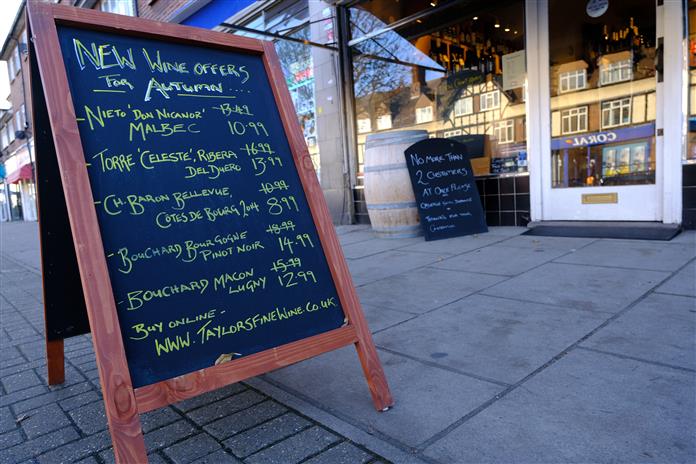 New Wine offers
for Autumn ....
- Nieto 'Don Nicanor' 13.49
Malbec 10.99
- Torre 'Celeste', Ribera 16.99
Del Duero 13.99
- Ch. Baron Bellevue, 10.99
Côtes de Bourg 2014 8.99
- Bouchard Bourgogne 18.99
Pinot Noir 14.99
- Bouchard Macon 15.99
Lugny 12.99
Buy online -
www.TaylorsFineWine.co.uk
No more than
2 customers
at once please.
CORAL